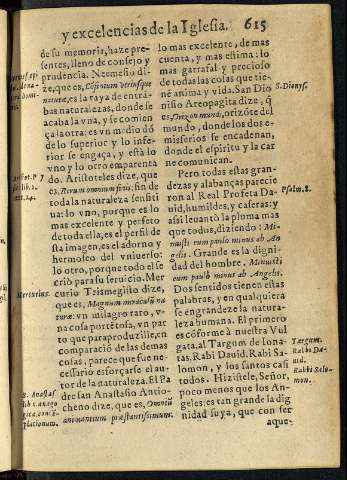 y excelencias de la Iglesia. 615
de su memoria, haze pre-
sentes, lleno de consejo y
prudencia. Neemesio di-
ze, que es, Confinium vtriusque
naturæ, es la raya de entrã-
bas naturalezas, donde se
acaba la vna, y se comien-
ça la otra: es vn medio dõ
de lo superior y lo infe-
rior se engaça, y està lo
vno y lo otro emparenta
do. Aristoteles dize, que
es, Rerum omnium finis. fin de
toda la naturaleza sensiti
ua: lo vno, porque es lo
mas excelente y perfeto
de toda ella, es el perfil de
sta imagen, es el adorno y
hermoseo del vniuerso:
lo otro, porque todo el se
criò para su seruicio. Mer
curio Trismegisto dize,
que es, Magnum miraculũ na
turæ. vn milagro raro, v-
na cosa portẽtosa, vn par
to que para produzille, en
comparaciõ de las demas
cosas, parece que fue ne-
cessario esforçarse el au-
tor de la naturaleza. El Pa
dre san Anastasio Antio-
cheno dize, que es, Omniũ
animantium præstantissimum.
Mercurius.
S. Anastas.
lo mas excelente, de mas
cuenta, y mas estima: lo
mas garrafal y precioso
de todas las cosas que tie-
nẽ anima y vida. San Dio
nisio Areopagita dize, q̃
es, Orizon mundi, orizõte del
mundo, donde los dos e-
misferios se encadenan,
donde el espiritu y la car
ne comunican.
Pero todas estas gran-
dezas y alabanças parecie
ron al Real Profeta Da-
uid, humildes, y caseras: y
assi leuantò la pluma mas
que todos, diziendo: Mi-
nuisti eum paulò minus ab An
gelis. Grande es la digni-
dad del hombre. Minuisti
eum paulò minus ab Angelis.
Dos sentidos tienen estas
palabras, y en qualquiera
se engrandeze la natura-
leza humana. El primero
es cõforme à nuestra Vul
gata, al Targum de Iona-
tas, Rabi Dauid, Rabi Sa-
lomon, y los santos casi
todos. Hizistele, Señor,
poco menos que los An-
geles: es tan grande la dig
nidad suya, que con ser
aque-
S. Dionys.
Psalm. 8.
Targum.
Rabbi Da-
uid.
Rabbi Salo-
mon.